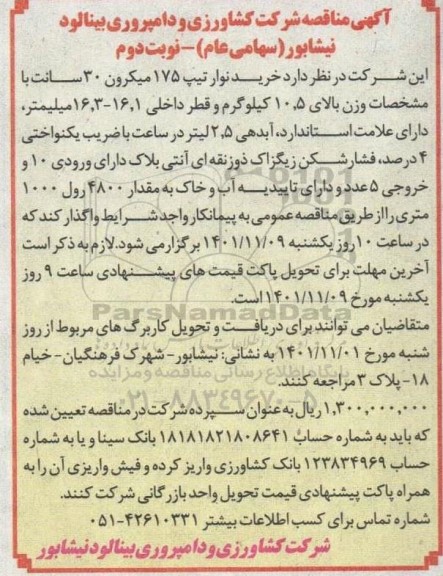 آگهی مناقصه شرکت کشاورزی و دامپروری بینالود
نیشابور (سهامی عام) – نوبت دوم
این شرکت در نظر دارد خرید نوار تیپ ۱۷۵ میکرون ۳۰ سانت با
مشخصات وزن بالای ۱۰,۵ کیلوگرم و قطر داخلی ۱۶,۱-۱۶,۳ میلیمتر،
دارای علامت استاندارد، آبدهی ۲,۵ لیتر در ساعت با ضریب یکنواختی
۴ درصد، فشارشکن زیگزاک ذوزنقه ای آنتی بلاک دارای ورودی ۱۰ و
خروجی ۵ عدد و دارای تاییدیه آب و خاک به مقدار ۴۸۰۰ رول ۱۰۰۰
متری را از طریق مناقصه عمومی به پیمانکار واجد شرایط واگذار کند که
در ساعت ۱۰ روز یکشنبه ۱۴۰۱/۱۱/۰۹ برگزار می شود. لازم به ذکر است
آخرین مهلت برای تحویل پاکت قیمت های پیشنهادی ساعت ۹ روز
یکشنبه مورخ ۱۴۰۱/۱۱/۰۹ است.
ParsNamadData
متقاضیان می توانند برای دریافت و تحویل کاربرگ های مربوط از روز
شنبه مورخ ۱۴۰۱/۱۱/۰۱ به نشانی: نیشابور- شهرک فرهنگیان- خیام
پایگاه اطلاع رسانی مناقصه و مزایده
۱۸- پلاک ۳ مراجعه کنند.
۰۲۱-۸۸۳۴۹۶۷۰-۵
۱,۳۰۰,۰۰۰,۰۰۰ ریال به عنوان سپرده شرکت در مناقصه تعیین شده
که باید به شماره حساب ۱۸۱۸۱۸۲۱۸۰۸۶۴۱ بانک سینا و یا به شماره
حساب ۱۲۳۸۳۴۹۶۹ بانک کشاورزی واریز کرده و فیش واریزی آن را به
همراه پاکت پیشنهادی قیمت تحویل واحد بازرگانی شرکت کنند.
شماره تماس برای کسب اطلاعات بیشتر ۴۲۶۱۰۳۳۱-۰۵۱
شرکت کشاورزی و دامپروری بینالود نیشابور